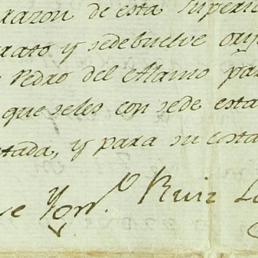 razon de esta Superio
trato y sedebuelve orig
Pedro del Alamo par
que seles con sede esta
tada, y para su costa
Ruiz